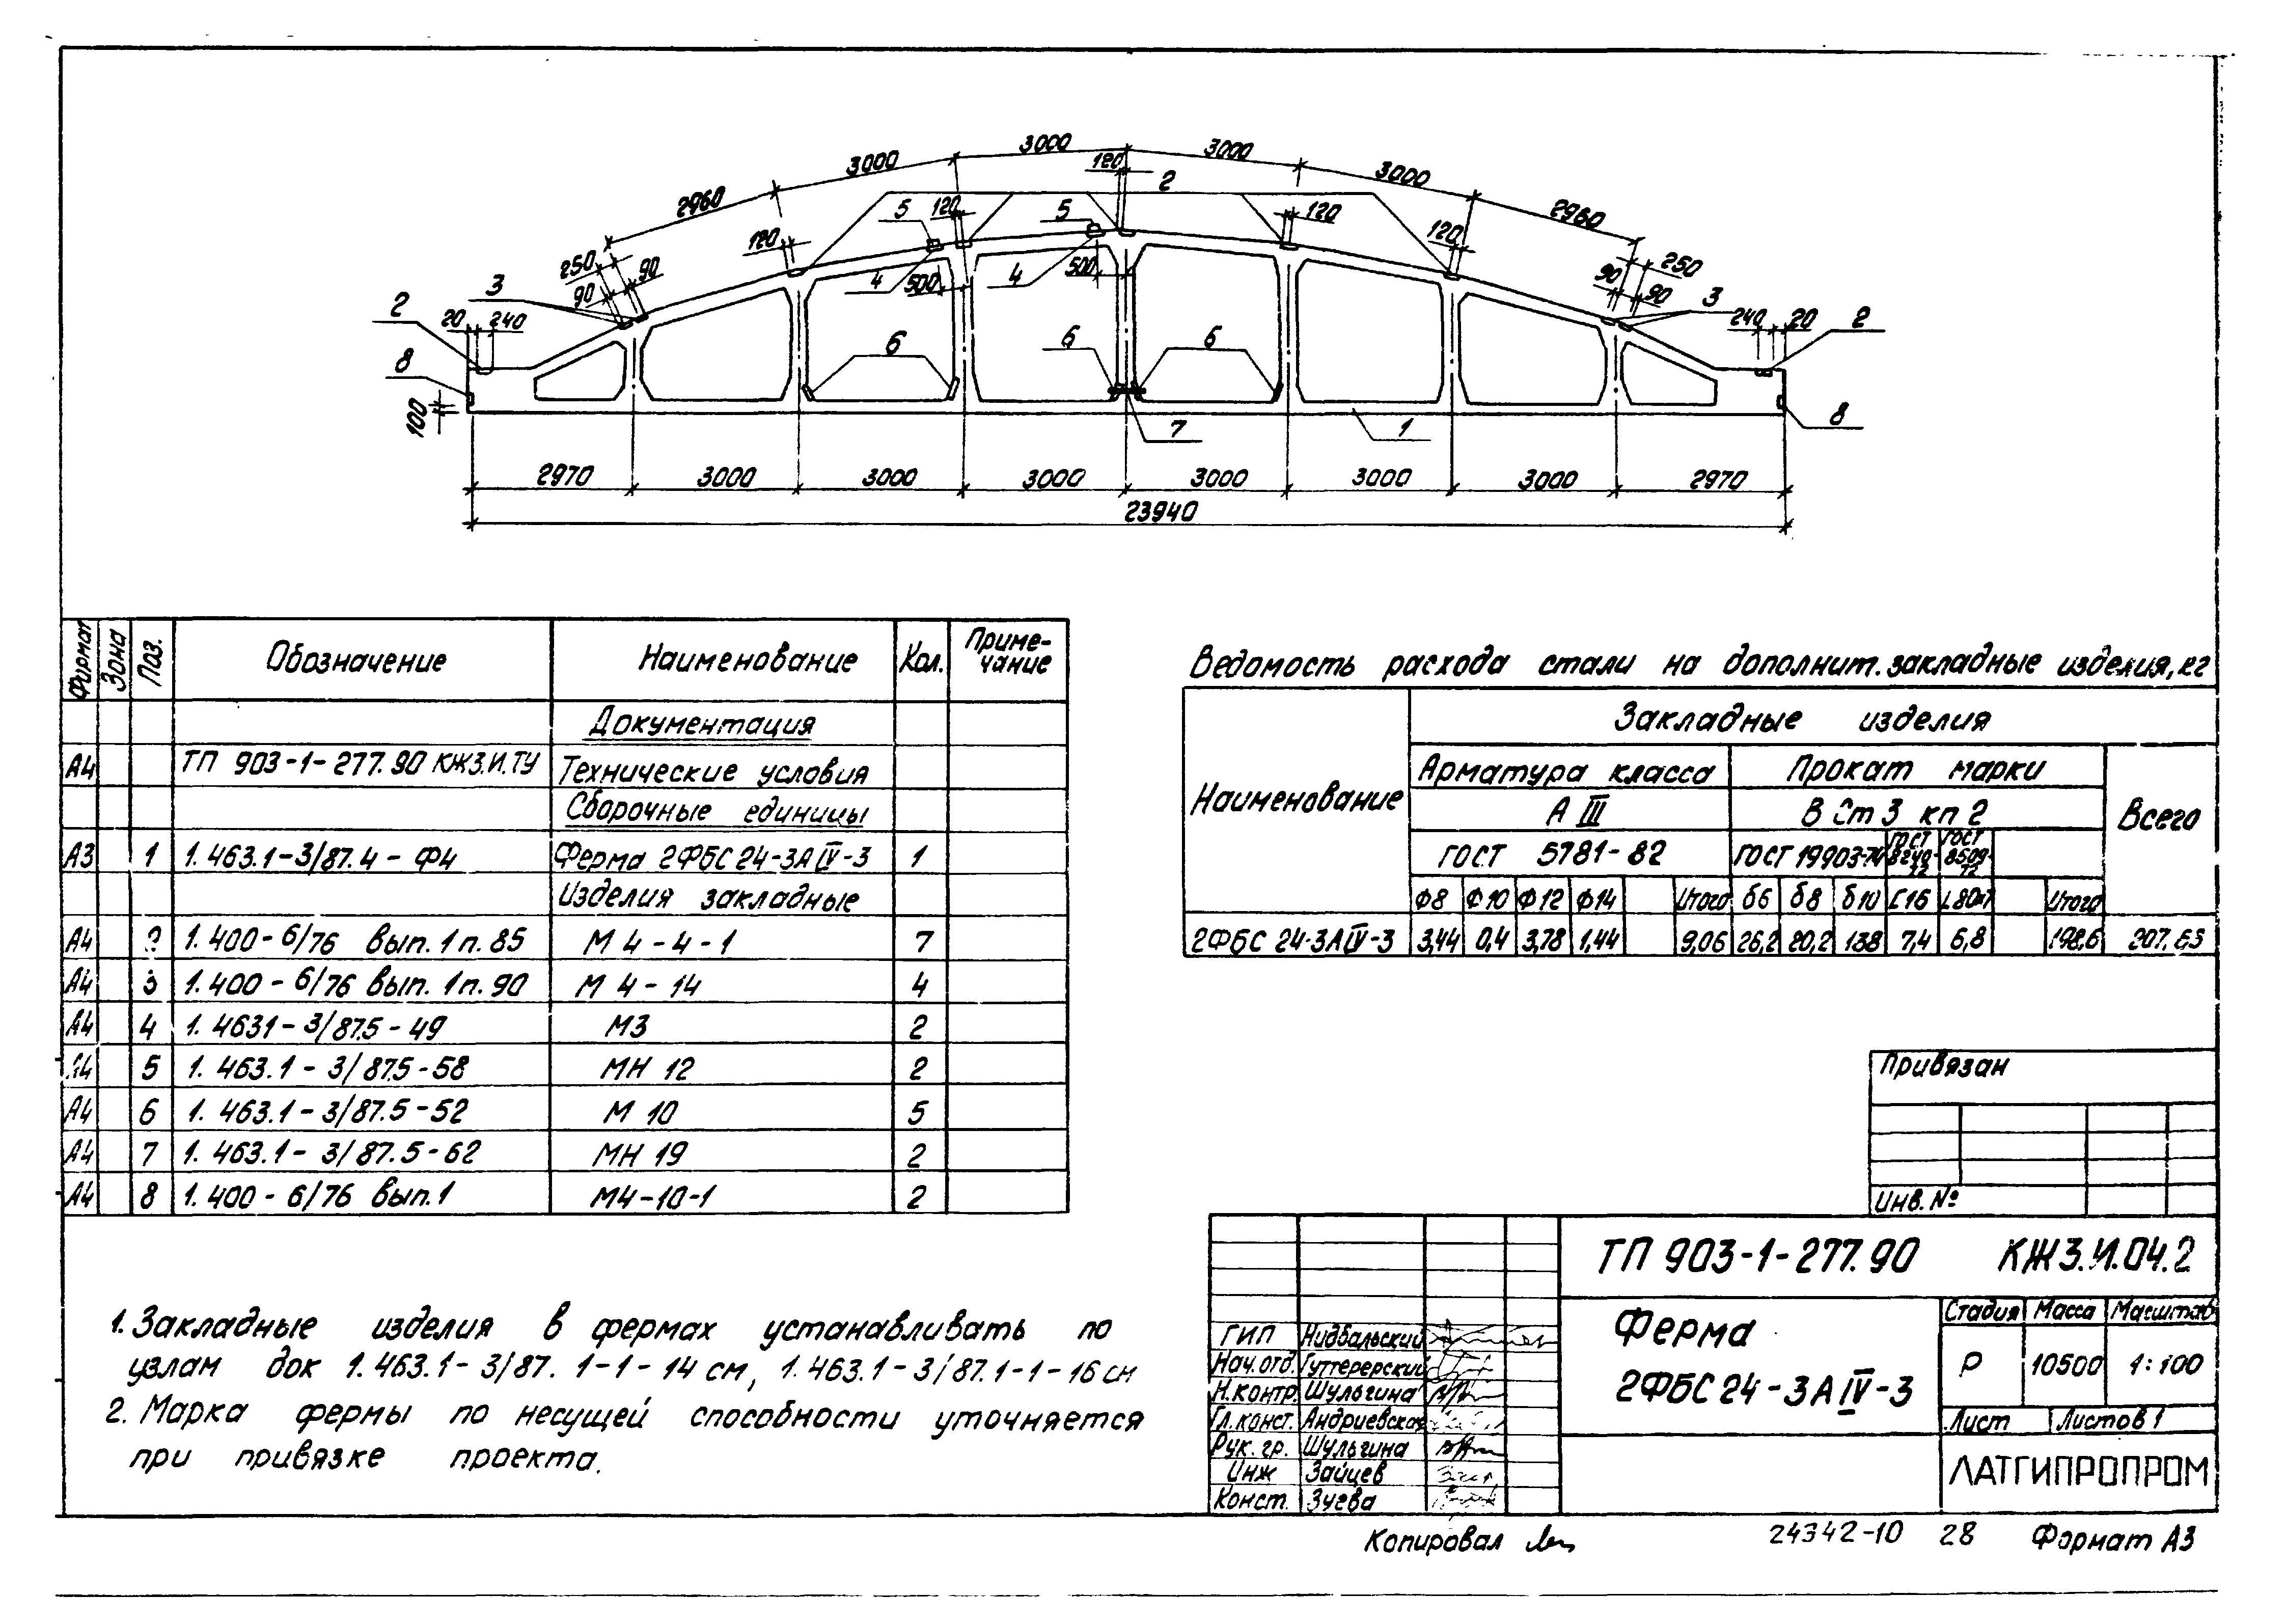 3000
3000
3000
3000
2960
2960
120
2
5
120
5
120
120
120
250
90
90
4
500
4
500
90
250
90
3
3
2
20
240
240
20
2
8
6
6
6
100
7
1
8
2970
3000
3000
3000
3000
3000
3000
2970
23940
Формат Зона Поз. Обозначение Наименование Кол. Приме-
чание
Документация
А4 ТП 903-1-277.90 КЖ3.И.ТУ Технические условия
Сборочные единицы
А3 1 1.463.1-3/87.4-Ф4 Ферма 2ФБС24-3АIV-3 1
Изделия закладные
А4 1.400-6/76 вып. 1 п. 85 М 4-4-1 7
А4 3 1.400-6/76 вып. 1 п. 90 М 4-14 4
А4 4 1.4631-3/87.5-49 М3 2
5 1.463.1-3/87.5-58 МН 12 2
А4 6 1.463.1-3/87.5-52 М 10 5
А4 7 1.463.1-3/87.5-62 МН 19 2
А4 8 1.400-6/76 вып. 1 М4-10-1 2
Ведомость расхода стали на дополнит. закладные изделия, кг
Наименование
Закладные изделия
Арматура класса Прокат марки Всего
А III В Ст 3 кп 2
ГОСТ 5781-82 ГОСТ 19903-74 ГОСТ 8240-72 ГОСТ 8509-72
Ф8 Ф10 Ф12 Ф14 Итого δ6 δ8 δ10 [16 L80×7 Итого
2ФБС 24-3АIV-3 3,44 0,4 3,78 1,44 9,06 26,2 20,2 138 7,4 6,8 198,6
Привязан
Инв. №
1. Закладные изделия в фермах устанавливать по
узлам док 1.463.1-3/87. 1-1-14 см, 1.463.1-3/87.1-1-16 см
2. Марка фермы по несущей способности уточняется
при привязке проекта.
ТП 903-1-277.90 КЖ3.И.04.2
Ферма
2ФБС24-3АIV-3
Стадия Масса Масштаб
Р 10500 1:100
Лист Листов 1
ЛАТГИПРОПРОМ
ГИП Нидбальский
Нач. отд. Гуттерерский
Н.контр. Шульгина
Гл. конст. Андриевская
Рук. гр. Шульгина
Инж Зайцев
Конст. Зуева
Копировал 24342-10 28 Формат А3